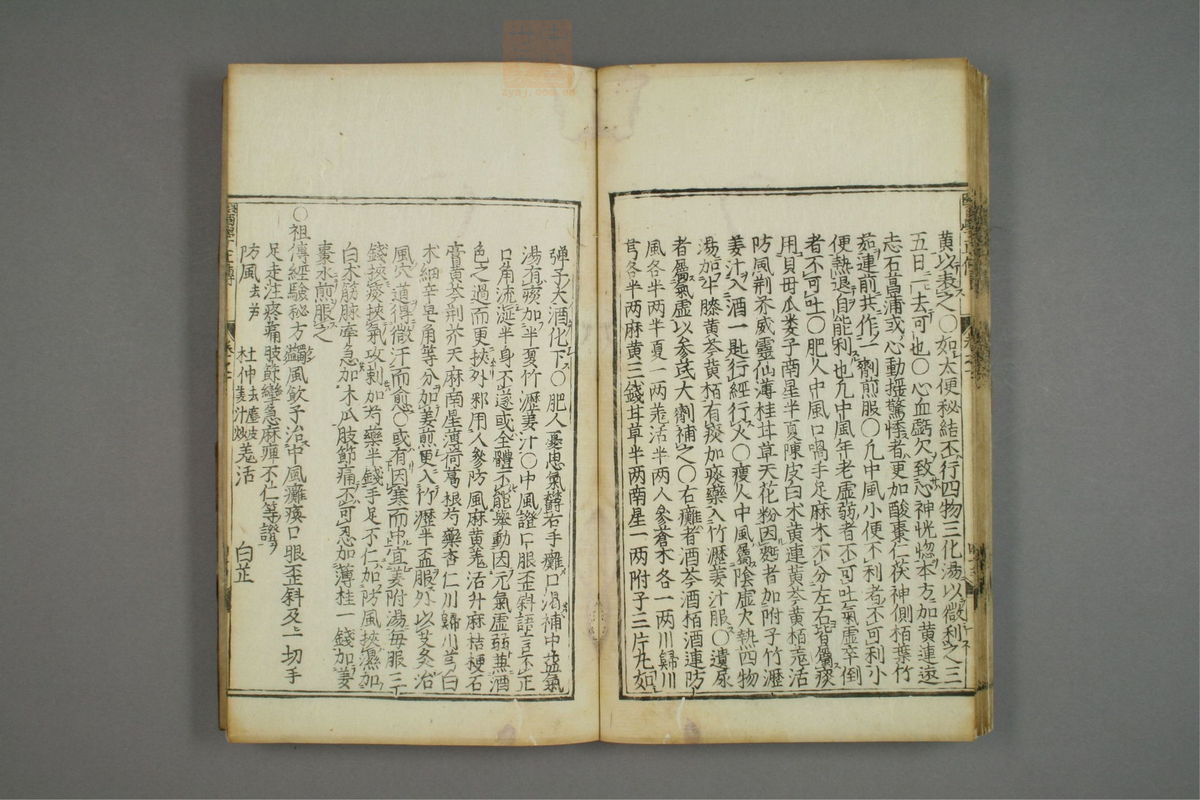 黄以表之○如大便秘結不行四物三化湯以微利之三
五日一去可也○心血虧欠致心神恍惚本方加黄連遠
志石菖蒲或心動揺驚悸者更加酸棗仁茯神側栢葉竹
茹連前共作一劑煎服○凡中風小便不利者不可利小
便熱退自能利也凡中風年老虚弱者不可吐氣虚卒倒
者不可吐○肥人中風口喎手足麻木不分左右皆屬痰
用貝母瓜蔞子南星半夏陳皮白朮黄連黄芩黄栢羌活
防風荆芥威靈仙薄桂甘草天花粉因麪者加附子竹瀝
姜汁入酒一匙行經行火○瘦人中風屬陰虚火熱四物
湯加牛膝黄芩黄栢有痰加痰藥入竹瀝姜汁服○遺尿
者屬氣虚以参芪大劑補之○右癱者酒芩酒栢酒連防
風各半両半夏一両羌活半両人参蒼朮各一両川歸川
芎各半両麻黄三錢甘草半両南星一両附子三片丸如
弾子大酒化下○肥人憂思氣欝右手癱口渇補中益氣
湯有痰加半夏竹瀝姜汁○中風證口眼歪斜語言不正
口角流涎半身不遂或全體不能擧動因元氣虚弱兼酒
色之過而更挾外邪用人参防風麻黄羌活升麻桔梗石
膏黄芩荆芥天麻南星薄荷葛根芍藥杏仁川歸川芎白
朮細辛皂角等分加姜煎更入竹瀝半盃服外以艾灸治
風穴道得微汗而愈○或有因寒而中宜姜附湯毎服三
錢挾痰挾氣攻刺加芍藥半錢手足不仁加防風挾濕加
白朮筋脉牽急加木瓜肢節痛不可忍加薄桂一錢加姜
棗水煎服之
○祖傳經驗秘方蠲風飲子治中風癱瘓口眼歪斜及一切手
足走注疼痛肢節攣急麻痺不仁等證
防風去芦 杜仲去麄皮姜汁炒 羌活 白芷